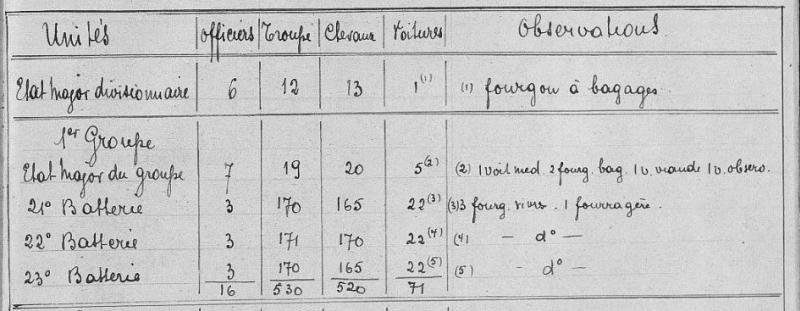 Unités Officiers Troupe Chevaux Voitures Observations
Etat Major divisionnaire 6 12 13 1(1) (1) fourgon à bagages
1er Groupe
Etat Major du groupe 7 19 20 5(2) (2) 1 voit med. 2 fourg. bag. 1 v. viande 1 v. observ.
21e Batterie 3 170 165 22(3) (3) 3 fourg. vivres. 1 fourragère.
22e Batterie 3 171 170 22(4) (4) — d° —
23e Batterie 3 170 165 22(5) (5) — d° —
16 530 520 71